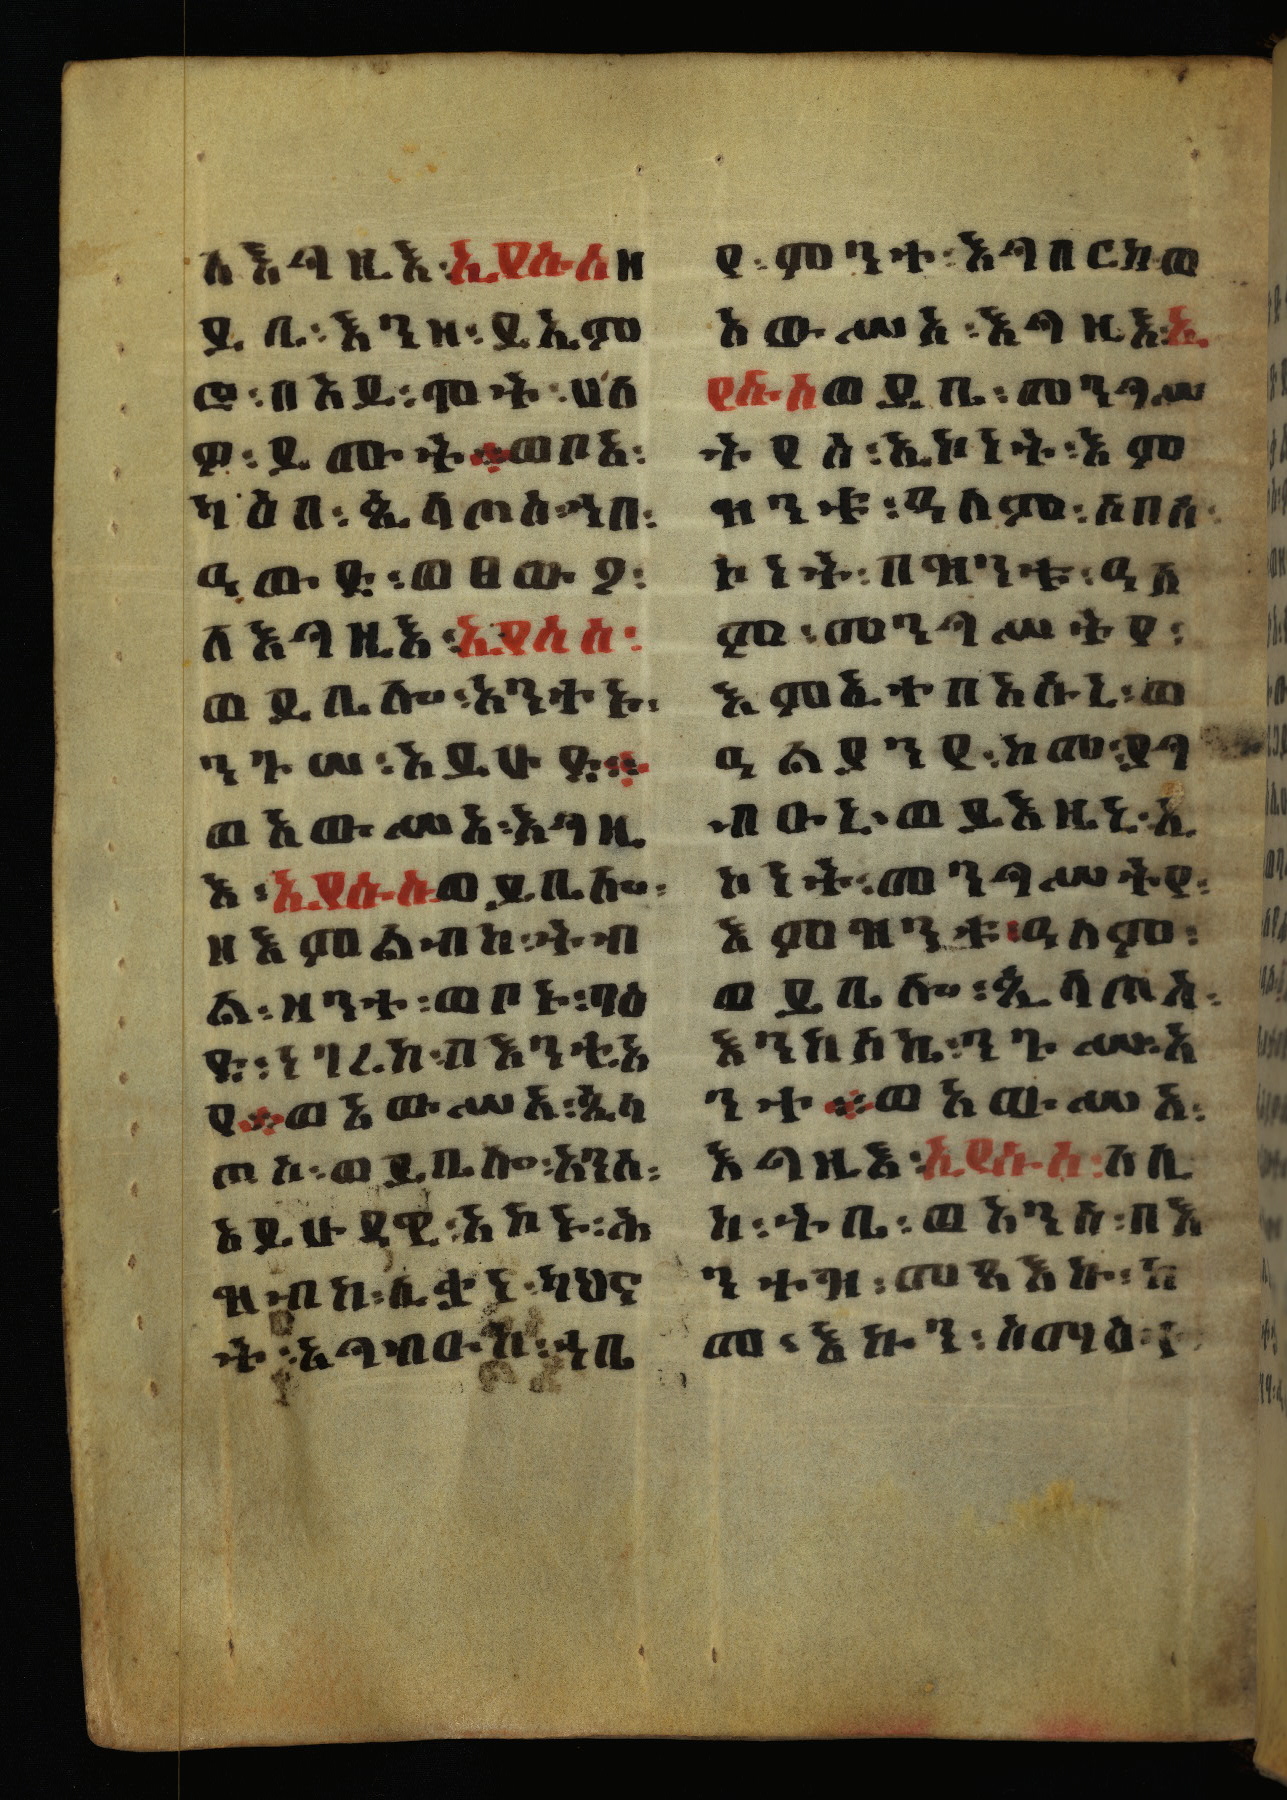 ለእግዚእ፡ኢየሱስዘ
ይቤ፡እንዘ፡ይኤም
ሮ፡በአይ፡ሞት፡ሀለ
ዎ፡ይሙት፡፡ወቦአ፡
ካዕበ፡ጲላጦስ፡ኀበ፡
ዓውድ፡ወፀውዖ፡
ለእግዚእ፡ኢየሱስ፡
ወይቤሎ፡አንተኑ፡
ንጉሠ፡አይሁድ፡፡
ወአውሥአ፡እግዚ
እ፡ኢየሱስወይቤሎ፡
ዘእምልብከ፡ትብ
ል፡ዝንተ፡ወቦኑ፡ባዕ
ድ፡ነገረከ፡በእንቲአ
የ፡፡ወአውሥአ፡ጲላ
ጦስ፡ወይቤሎ፡አንሰ፡
አይሁዳዊ፡አኮኑ፡ሕ
ዝብከ፡ሊቃነ፡ካህና
ት፡አግብኡከ፡ኀቤ
የ፡ምንተ፡እግበርከወ
አውሥአ፡እግዚእ፡ኢ
የሱስወይቤ፡መንግሥ
ትየሰ፡ኢኮነት፡እም
ዝንቱ፡ዓለም፡ሶበሰ፡
ኮነት፡በዝንቱ፡ዓለ
ም፡መንግሥትየ፡
እምፈተበአሱኒ፡ወ
ዓልያንየ፡ከመ፡ኢያግ
ብኡኒ፡ወይእዜኒ፡ኢ
ኮነት፡መንግሥትየ፡
እምዝንቱ፡ዓለም፡
ወይቤሎ፡ጲላጦስ፡
እንከሰኬ፡ንጉሥ፡አ
ንተ፡፡ወአውሥአ፡
እግዚእ፡ኢየሱስ፡ለሊ
ከ፡ትቤ፡ወአንሰ፡በእ
ንተዝ፡መጻእኩ፡ከ
መ፡እኩን፡ሰማዕተ፡